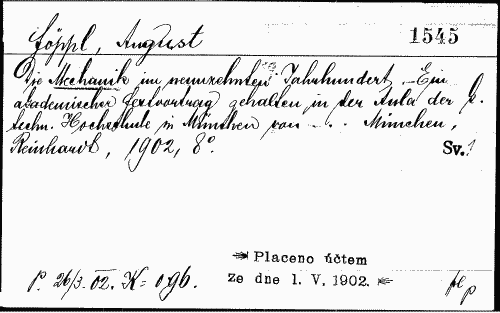 Föppl, August 1545
Die Mechanik im neunzehnten Jahrhundert. Ein
akademischer Festvortrag gehalten in der Aula der k.
techn. Hochschule in München von - . . München,
Reinhardt, 1902, 8°. Sv. 1
Placeno účtem
p. 26/3. 02. K = 0.96. ze dne 1. V. 1902.